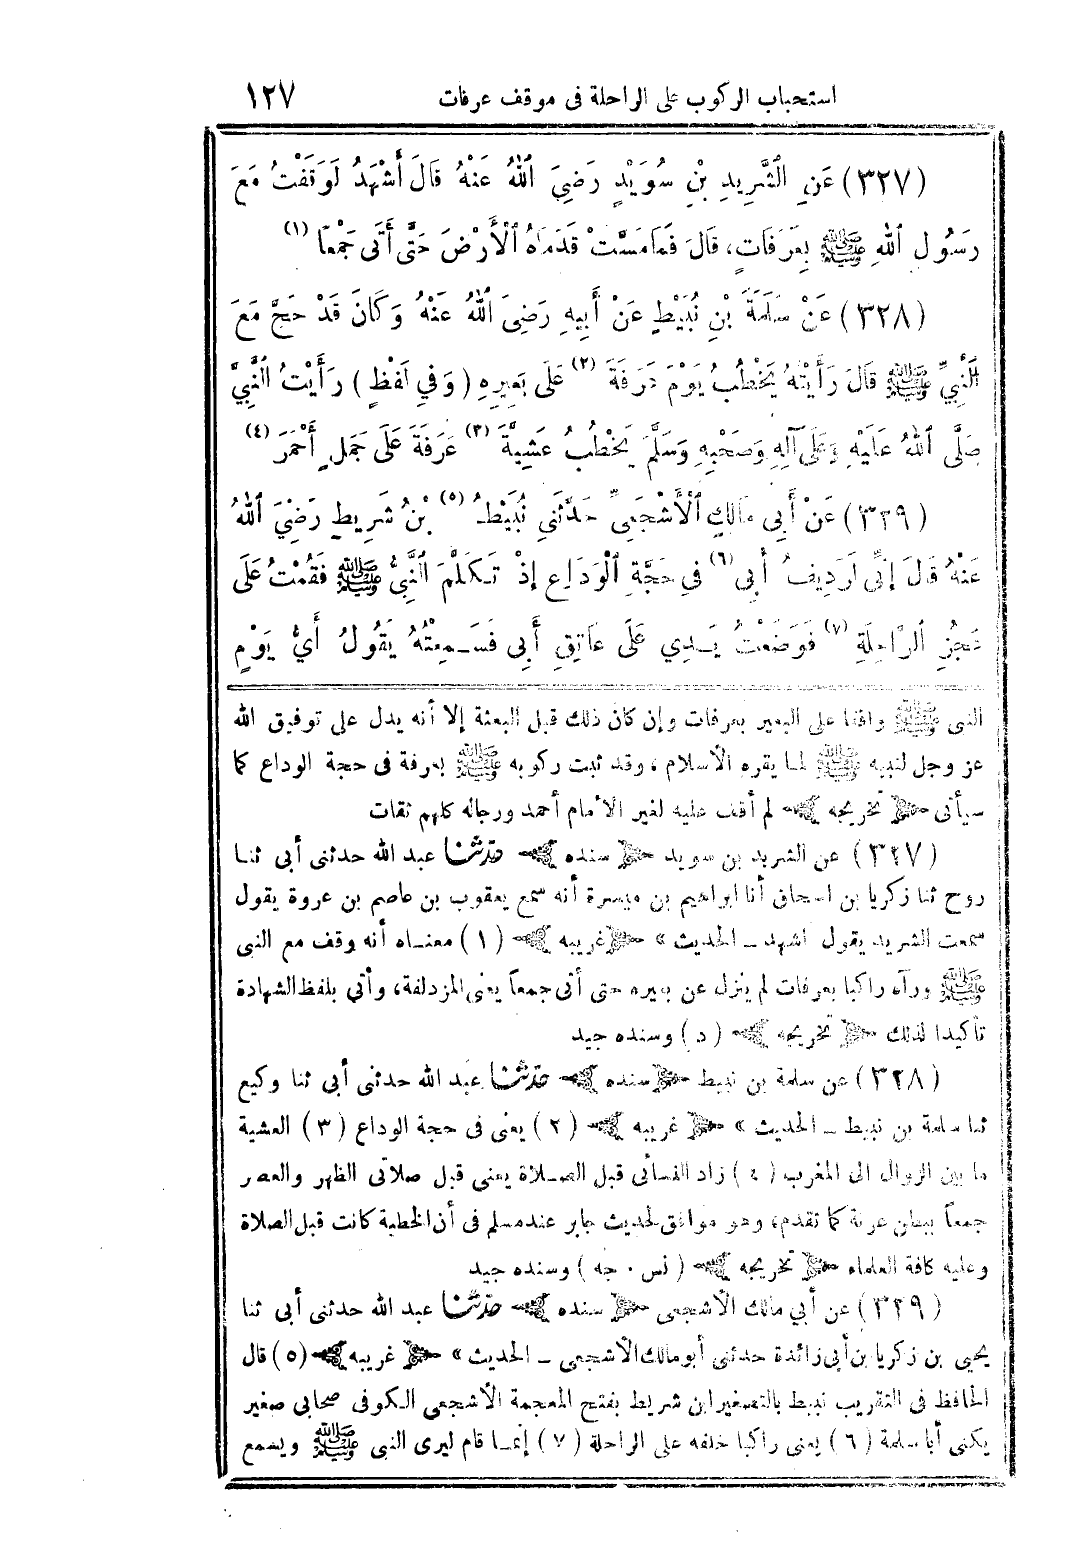 استحباب الركوب على الراحلة فى موقف عرفات ١٢٧
(٣٢٧) عَنِ الشَّرِيدِ بْنِ سُوَيْدٍ رَضِيَ اللهُ عَنْهُ قَالَ أَشْهَدُ لَوَقَفْتُ مَعَ
رَسُولِ اللهِ ﷺ بِعَرَفَاتٍ، قَالَ فَمَا مَسَّتْ قَدَمَاهُ الْأَرْضَ حَتَّى أَتَى جَمْعًا (١)
(٣٢٨) عَنْ سَلَمَةَ بْنِ نُبَيْطٍ عَنْ أَبِيهِ رَضِيَ اللهُ عَنْهُ وَكَانَ قَدْ حَجَّ مَعَ
النَّبِيِّ ﷺ قَالَ رَأَيْتُهُ يَخْطُبُ يَوْمَ عَرَفَةَ (٢) عَلَى بَعِيرِهِ (وَفِي لَفْظٍ) رَأَيْتُ النَّبِيَّ
صَلَّى اللهُ عَلَيْهِ وَعَلَى آلِهِ وَصَحْبِهِ وَسَلَّمَ يَخْطُبُ عَشِيَّةَ (٣) عَرَفَةَ عَلَى جَمَلٍ أَحْمَرَ (٤)
(٣٢٩) عَنْ أَبِي مَالِكٍ الْأَشْجَعِيِّ حَدَّثَنِي نُبَيْطُ (٥) بْنُ شَرِيطٍ رَضِيَ اللهُ
عَنْهُ قَالَ إِنِّي لَرَدِيفُ أَبِي (٦) فِي حَجَّةِ الْوَدَاعِ إِذْ تَكَلَّمَ النَّبِيُّ ﷺ فَقُمْتُ عَلَى
عَجُزِ الرَّاحِلَةِ (٧) فَوَضَعْتُ يَدِي عَلَى عَاتِقِ أَبِي فَسَمِعْتُهُ يَقُولُ أَيُّ يَوْمٍ
النبى ﷺ واقفا على البعير بعرفات وإن كان ذلك قبل البعثة إلا أنه يدل على توفيق الله
عز وجل لنبيه ﷺ لما يقره الأسلام، وقد ثبت ركوبه ﷺ بعرفة فى حجة الوداع كما
سيأتى ﴿ تخريجه ﴾ لم أقف عليه لغير الأمام أحمد ورجاله كلهم ثقات
(٣٢٧) عن الشريد بن سويد ﴿ سنده ﴾ حدثنا عبد الله حدثنى أبى ثنا
روح ثنا زكريا بن اسحاق أنا ابراهيم بن ميسرة أنه سمع يعقوب بن عاصم بن عروة يقول
سمعت الشريد يقول أشهد ــ الحديث » ﴿ غريبه ﴾ (١) معناه أنه وقف مع النبى
ﷺ ورآه راكبا بعرفات لم ينزل عن بعيره حتى أتى جمعاً يعنى المزدلفة، وأتى بلفظ الشهادة
تأكيدا لذلك ﴿ تخريجه ﴾ (د) وسنده جيد
(٣٢٨) عن سلمة بن نبيط ﴿ سنده ﴾ حدثنا عبد الله حدثنى أبى ثنا وكيع
ثنا سلمة بن نبيط ــ الحديث » ﴿ غريبه ﴾ (٢) يعنى فى حجة الوداع (٣) العشية
ما بين الزوال الى المغرب (٤) زاد النسائى قبل الصلاة يعنى قبل صلاتى الظهر والعصر
جمعاً ببطن عرنة كما تقدم، وهو موافق لحديث جابر عند مسلم فى أن الخطبة كانت قبل الصلاة
وعليه كافة العلماء ﴿ تخريجه ﴾ (نس . جه) وسنده جيد
(٣٢٩) عن أبي مالك الأشجعى ﴿ سنده ﴾ حدثنا عبد الله حدثنى أبى ثنا
يحيى بن زكريا بن أبى زائدة حدثنى أبو مالك الأشجعى ــ الحديث » ﴿ غريبه ﴾ (٥) قال
الحافظ فى التقريب نبيط بالتصغير ابن شريط بفتح المعجمة الأشجعى الكوفى صحابى صغير
يكنى أبا سلمة (٦) يعنى راكبا خلفه على الراحلة (٧) إنما قام ليرى النبى ﷺ ويسمع